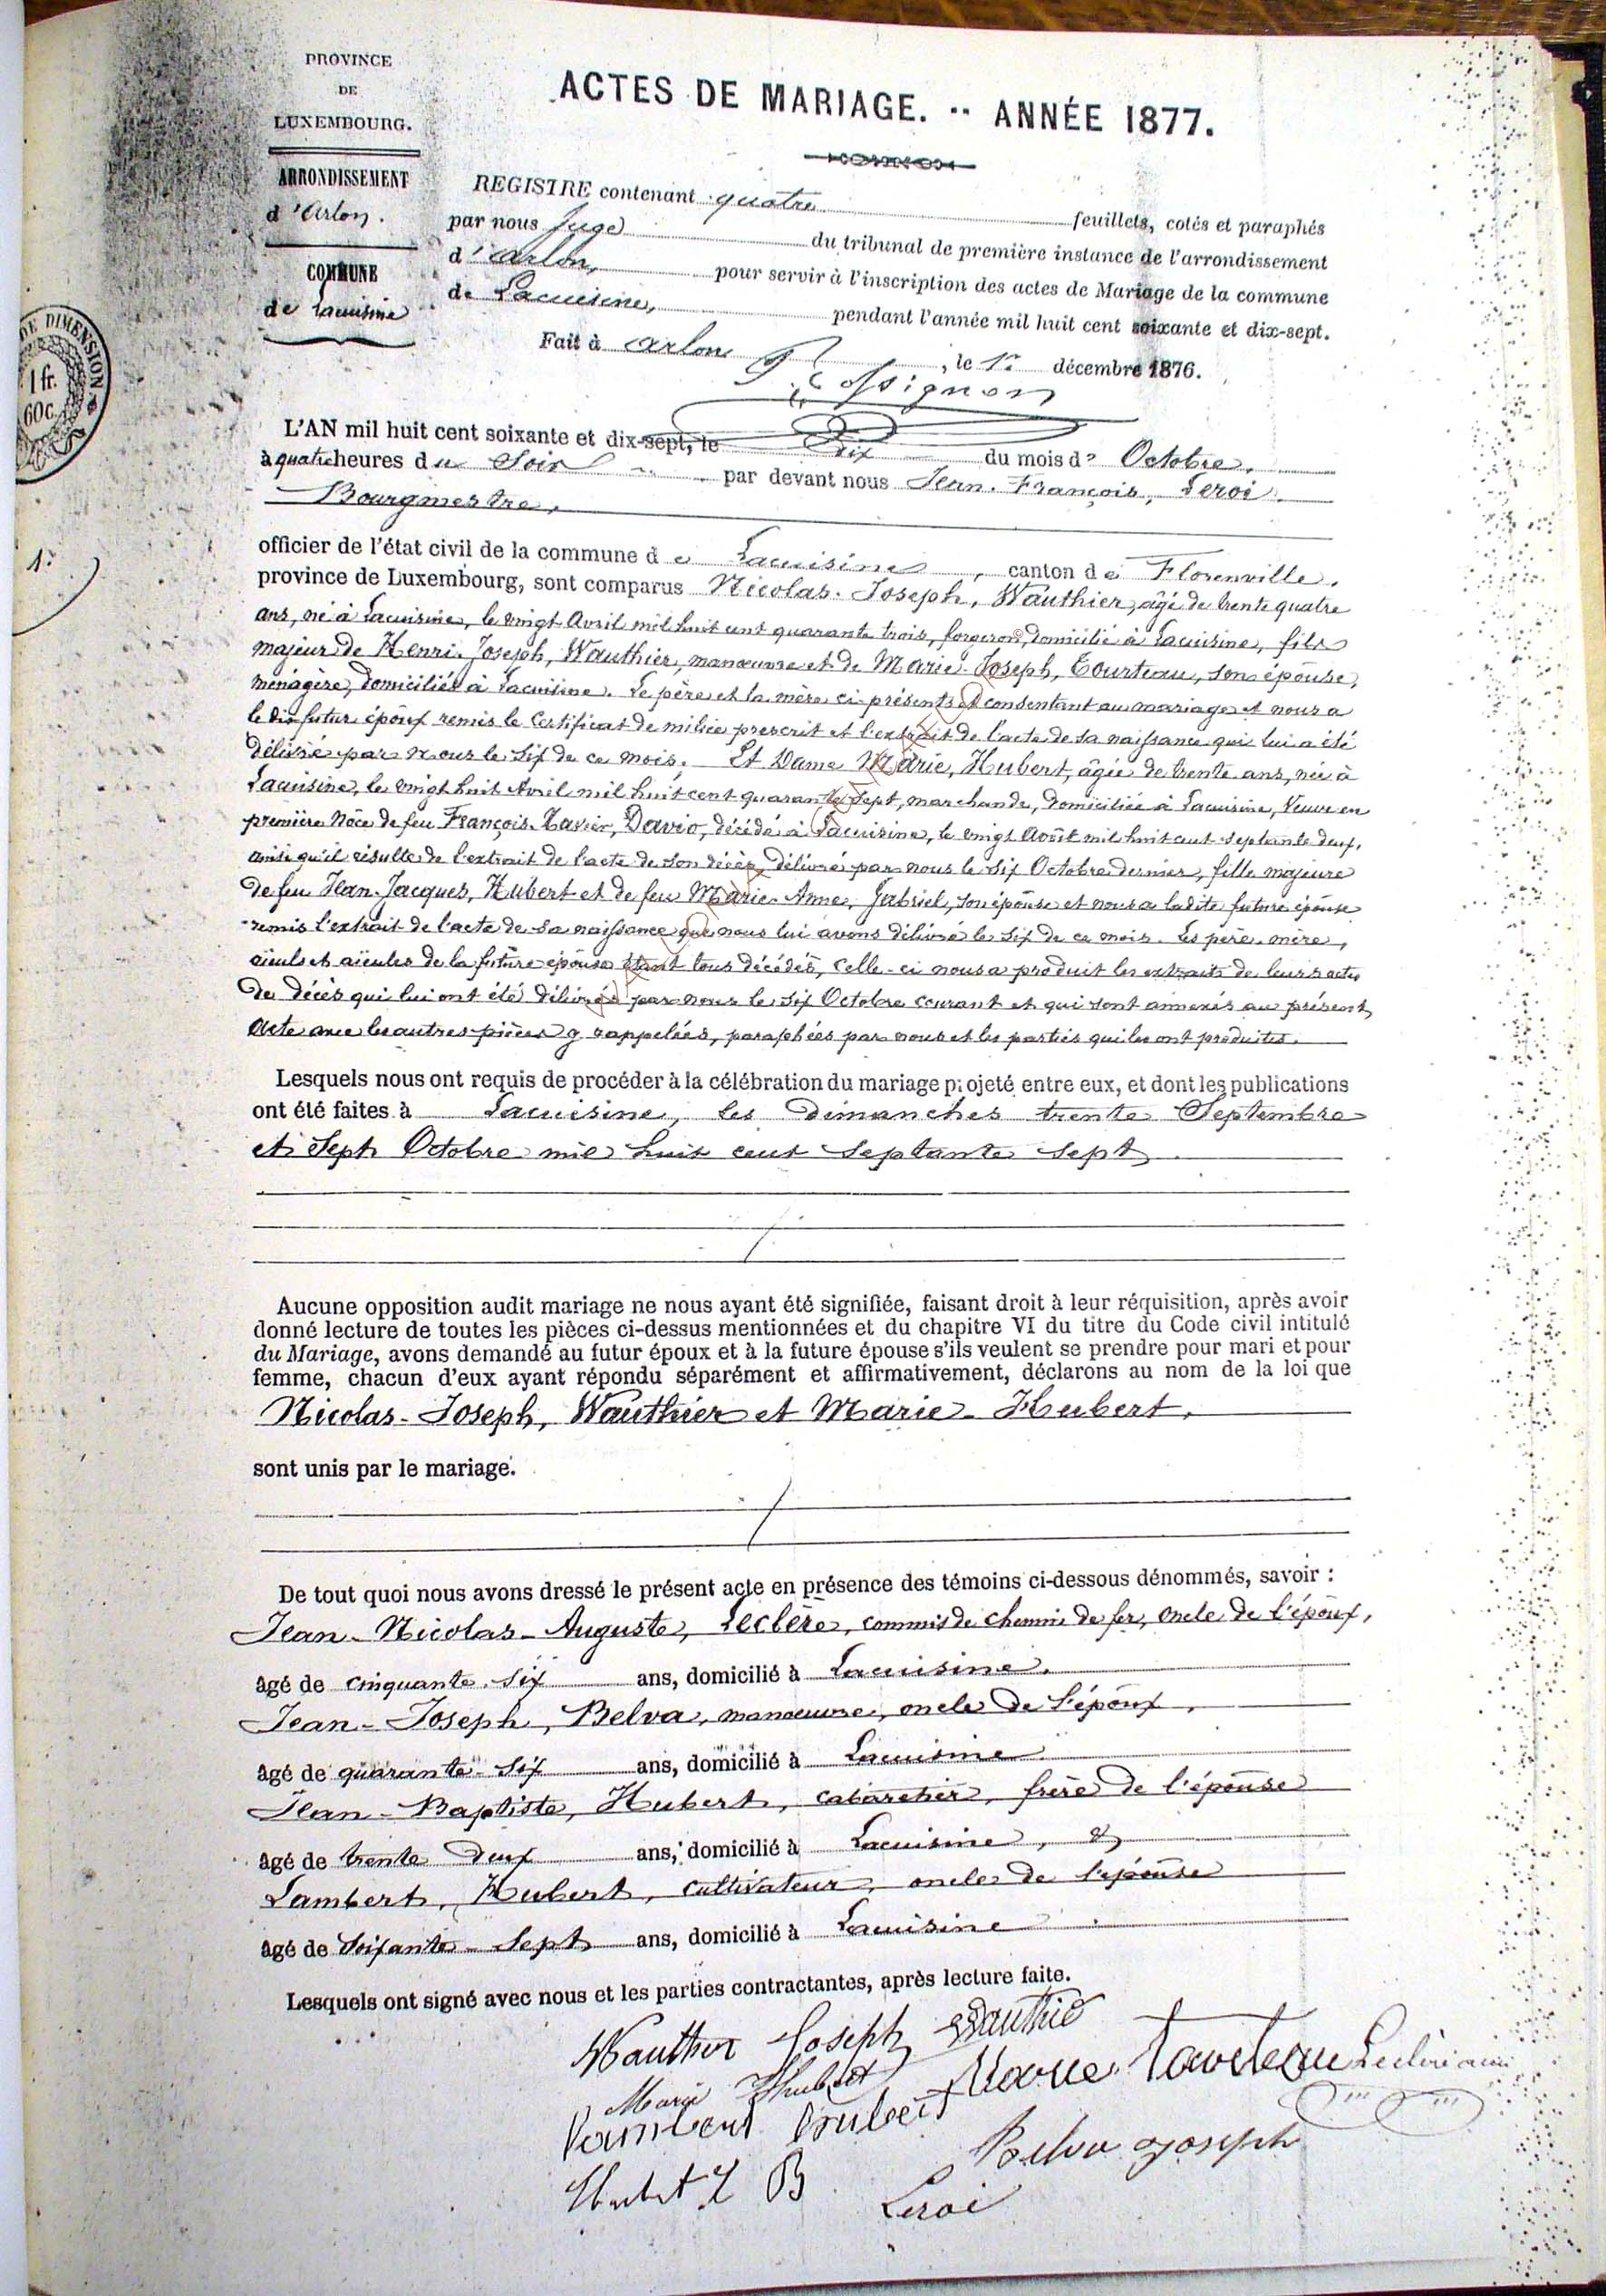 PROVINCE
DE
LUXEMBOURG.
ARRONDISSEMENT
d'Arlon.
COMMUNE
de Lacuisine
DE DIMENSION
1 fr.
60c
1r
ACTES DE MARIAGE. -- ANNÉE 1877.
REGISTRE contenant quatre feuillets, cotés et paraphés
par nous Juge du tribunal de première instance de l'arrondissement
d'Arlon, pour servir à l'inscription des actes de Mariage de la commune
de Lacuisine, pendant l'année mil huit cent soixante et dix-sept.
Fait à Arlon, le 1r décembre 1876.
L'AN mil huit cent soixante et dix-sept, le dix du mois d' Octobre,
à quatre heures du Soir par devant nous Jean-François, Leroi
Bourgmestre,
officier de l'état civil de la commune de Lacuisine, canton de Florenville,
province de Luxembourg, sont comparus Nicolas-Joseph, Wauthier, âgé de trente quatre
ans, né à Lacuisine, le vingt Avril mil huit cent quarante trois, forgeron, domicilié à Lacuisine, fils
majeur de Henri-Joseph, Wauthier, manœuvre et de Marie-Joseph, Tourteau, son épouse,
ménagère, domiciliés à Lacuisine. Le père et la mère ci-présents et consentant au mariage et nous a
le dit futur époux remis le Certificat de milice prescrit et l'extrait de l'acte de sa naissance qui lui a été
délivré par nous le Six de ce mois. Et Dame Marie, Hubert, âgée de trente ans, née à
Lacuisine, le vingt huit Avril mil huit cent quarante sept, marchande, domiciliée à Lacuisine, Veuve en
première Nôce de feu François-Xavier, Davio, décédé à Lacuisine, le vingt Août mil huit cent septante deux,
ainsi qu'il résulte de l'extrait de l'acte de son décès, délivré par nous le Six Octobre dernier, fille majeure
de feu Jean-Jacques, Hubert et de feu Marie-Anne, Gabriel, son épouse et nous a ladite future épouse
remis l'extrait de l'acte de sa naissance que nous lui avons délivré le Six de ce mois. Les père, mère,
aïeuls et aïeules de la future épouse étant tous décédés, celle-ci nous a produit les extraits de leurs actes
de décès qui lui ont été délivrés par nous le Six Octobre courant et qui sont annexés au présent
Acte avec les autres pièces y rappelées, paraphées par nous et les parties qui les ont produites.
Lesquels nous ont requis de procéder à la célébration du mariage projeté entre eux, et dont les publications
ont été faites à Lacuisine, les dimanches trente Septembre
et Sept Octobre mil huit cent septante sept
Aucune opposition audit mariage ne nous ayant été signifiée, faisant droit à leur réquisition, après avoir
donné lecture de toutes les pièces ci-dessus mentionnées et du chapitre VI du titre du Code civil intitulé
du Mariage, avons demandé au futur époux et à la future épouse s'ils veulent se prendre pour mari et pour
femme, chacun d'eux ayant répondu séparément et affirmativement, déclarons au nom de la loi que
Nicolas-Joseph, Wauthier et Marie-Hubert,
sont unis par le mariage.
De tout quoi nous avons dressé le présent acte en présence des témoins ci-dessous dénommés, savoir :
Jean-Nicolas-Auguste, Leclère, commis de chemin de fer, oncle de l'époux,
âgé de cinquante-six ans, domicilié à Lacuisine.
Jean-Joseph, Belva, manœuvre, oncle de l'époux,
âgé de quarante-six ans, domicilié à Lacuisine
Jean-Baptiste, Hubert, cabaretier, frère de l'épouse
âgé de trente deux ans, domicilié à Lacuisine, &
Lambert, Hubert, cultivateur, oncle de l'épouse
âgé de Soixante-Sept ans, domicilié à Lacuisine
Lesquels ont signé avec nous et les parties contractantes, après lecture faite.
Wauthier Joseph Wauthié
Marie Hubert Marie Tourteau
Lambert Hubert
Belva Joseph
Hubert J B
Leroi